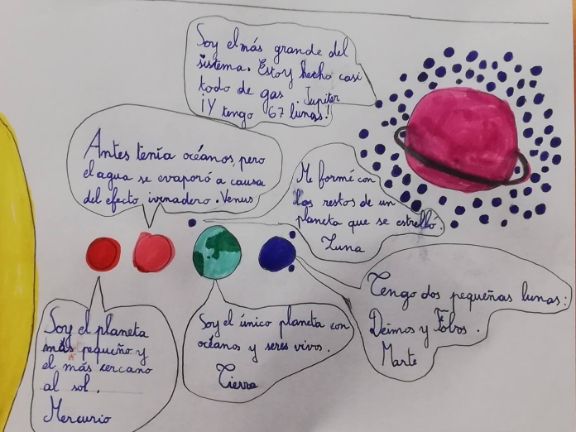 Soy el más grande del
sistema. Estoy hecho casi
todo de gas. Jupiter
¡Y tengo 67 lunas!
Antes tenía océanos, pero
el agua se evaporó a causa
del efecto ivernadero. Venus
Me formé con
los restos de un
planeta que se estrelló.
Luna
Tengo dos pequeñas lunas:
Deimos y Fobos.
Marte
Soy el único planeta con
océanos y seres vivos.
Tierra
Soy el planeta
más pequeño y
el más cercano
al sol.
Mercurio